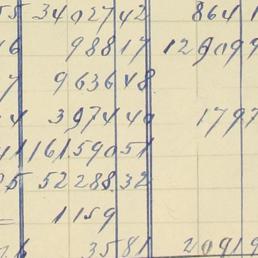 55 34027 42 864 1
16 988 17 129099
7 9636 48
4 3974 40 1797
41 161590 51
25 52288 32
= 1159
26 35 81 20919